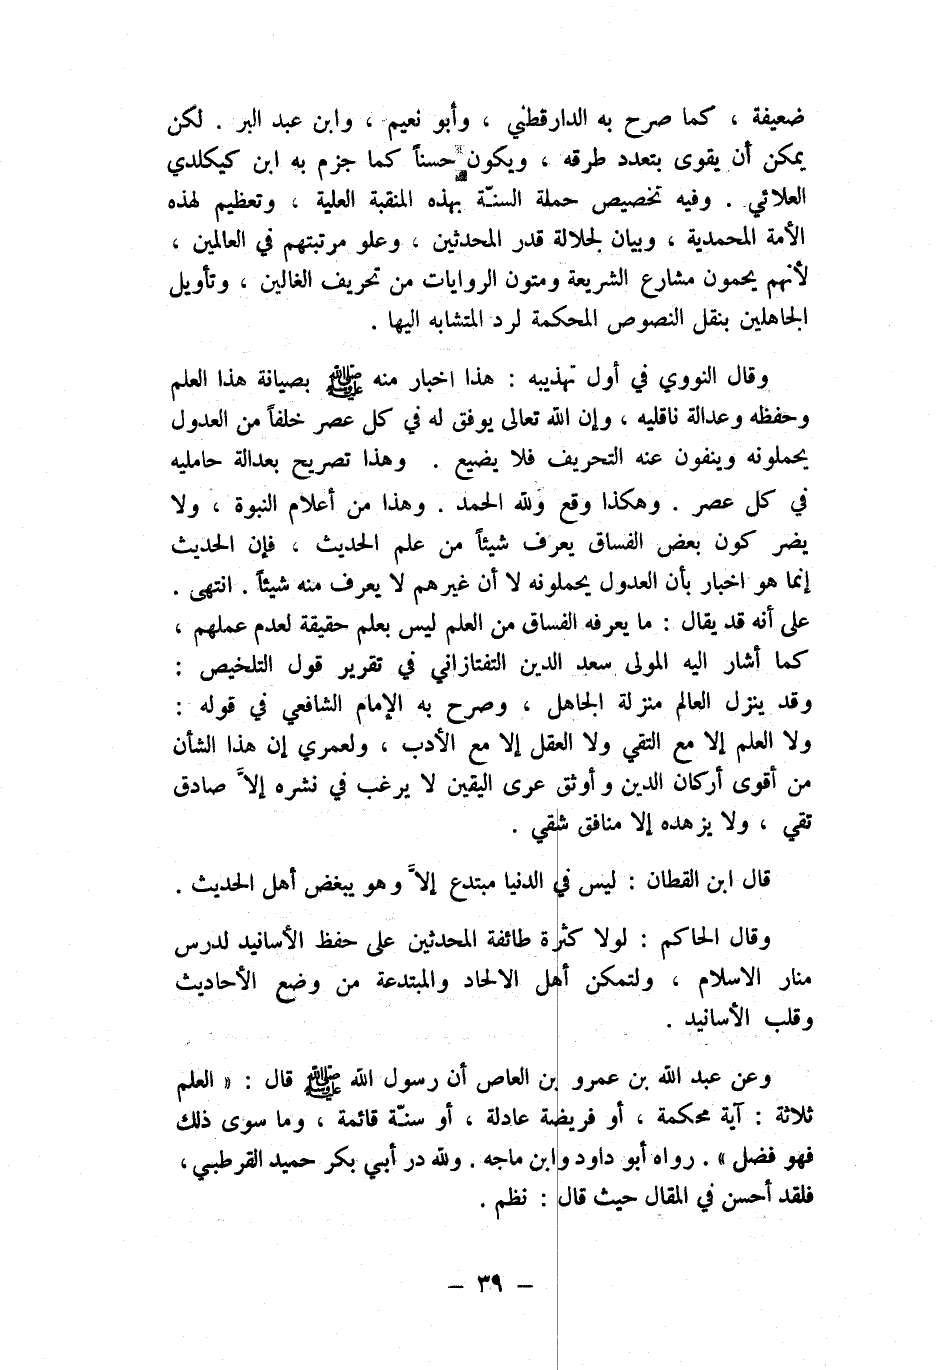 ضعيفة ، كما صرح به الدارقطني ، وأبو نعيم ، وابن عبد البر . لكن
يمكن أن يقوى بتعدد طرقه ، ويكون حسناً كما جزم به ابن كيكلدي
العلائي . وفيه تخصيص حملة السنّة بهذه المنقبة العلية ، وتعظيم لهذه
الأمة المحمدية ، وبيان لجلالة قدر المحدثين ، وعلو مرتبتهم في العالمين ،
لأنهم يحمون مشارع الشريعة ومتون الروايات من تحريف الغالين ، وتأويل
الجاهلين بنقل النصوص المحكمة لرد المتشابه اليها .
وقال النووي في أول تهذيبه : هذا اخبار منه ﷺ بصيانة هذا العلم
وحفظه وعدالة ناقليه ، وإن الله تعالى يوفق له في كل عصر خلفاً من العدول
يحملونه وينفون عنه التحريف فلا يضيع . وهذا تصريح بعدالة حامليه
في كل عصر . وهكذا وقع ولله الحمد . وهذا من أعلام النبوة ، ولا
يضر كون بعض الفساق يعرف شيئاً من علم الحديث ، فإن الحديث
إنما هو اخبار بأن العدول يحملونه لا أن غيرهم لا يعرف منه شيئاً . انتهى .
على أنه قد يقال : ما يعرفه الفساق من العلم ليس بعلم حقيقة لعدم عملهم ،
كما أشار اليه المولى سعد الدين التفتازاني في تقرير قول التلخيص :
وقد ينزل العالم منزلة الجاهل ، وصرح به الإمام الشافعي في قوله :
ولا العلم إلا مع التقي ولا العقل إلا مع الأدب ، ولعمري إن هذا الشأن
من أقوى أركان الدين وأوثق عرى اليقين لا يرغب في نشره إلاَّ صادق
تقي ، ولا يزهده إلا منافق شقي .
قال ابن القطان : ليس في الدنيا مبتدع إلاَّ وهو يبغض أهل الحديث .
وقال الحاكم : لولا كثرة طائفة المحدثين على حفظ الأسانيد لدرس
منار الاسلام ، ولتمكن أهل الالحاد والمبتدعة من وضع الأحاديث
وقلب الأسانيد .
وعن عبد الله بن عمرو بن العاص أن رسول الله ﷺ قال : « العلم
ثلاثة : آية محكمة ، أو فريضة عادلة ، أو سنّة قائمة ، وما سوى ذلك
فهو فضل » . رواه أبو داود وابن ماجه . ولله در أبي بكر حميد القرطبي ،
فلقد أحسن في المقال حيث قال : نظم .
– ٣٩ –